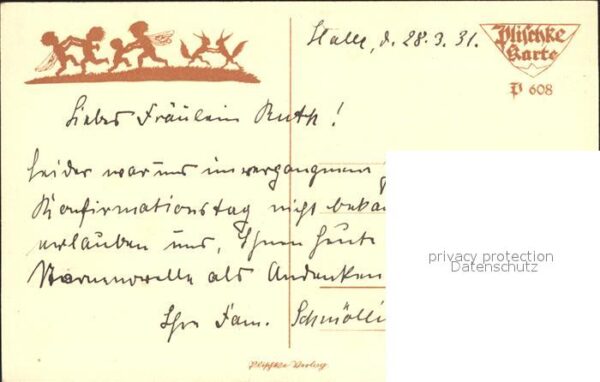 Halle, d. 28.3.31.
Plischke
Karte
P 608
Liebes Fräulein Ruth!
Leider war uns im vergangenen
Konfirmationstag nicht beka
erlauben uns, Ihnen heute
als Andenken
Ihre Fam. Schmölli
privacy protection
Datenschutz
Plischke-Verlag